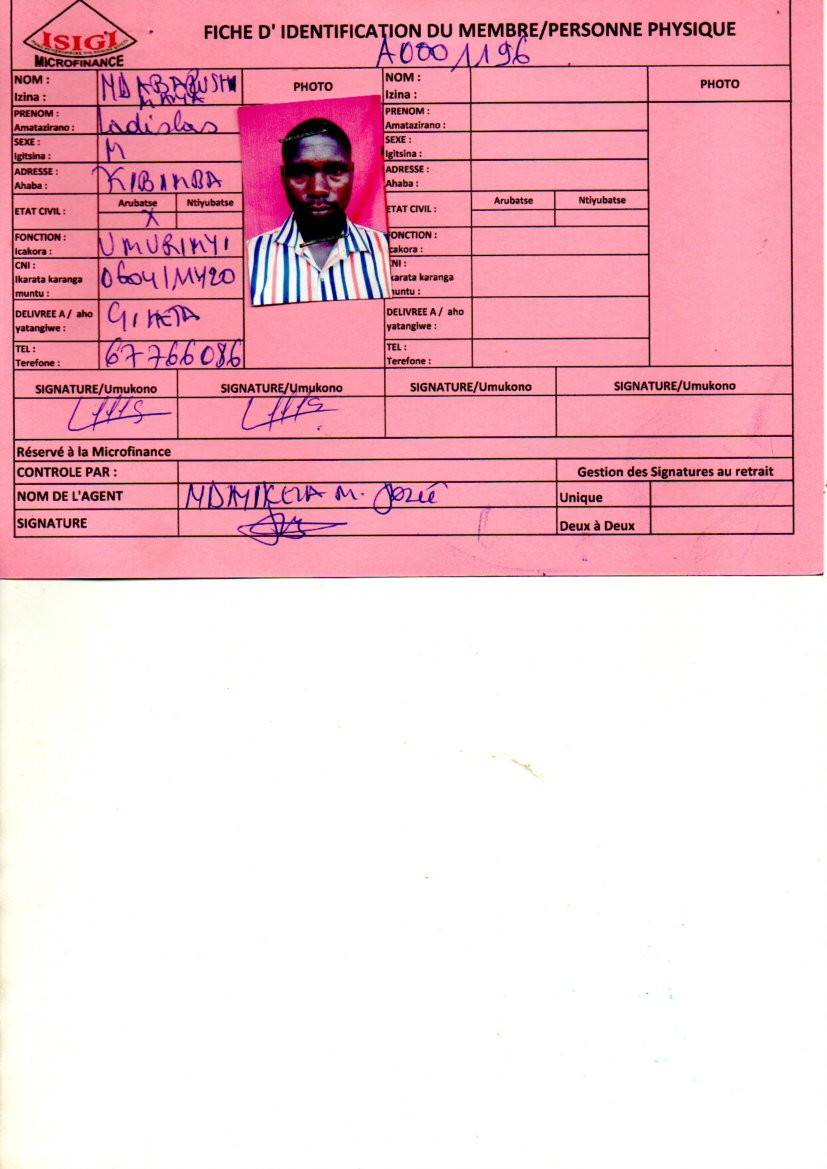 ISIGI
MICROFINANCE
FICHE D' IDENTIFICATION DU MEMBRE/PERSONNE PHYSIQUE
A0001196
NOM :
Izina :
NDABARUSHI
MANA
PHOTO
PRENOM :
Amatazirano :
Ladislas
SEXE :
Igitsina :
M
ADRESSE :
Ahaba :
KIBIMBA
ETAT CIVIL :
Arubatse Ntiyubatse
X
FONCTION :
Icakora :
UMURIMYI
CNI :
Ikarata karanga
muntu :
DELIVREE A / aho
yatangiwe :
GIHETA
TEL :
Terefone :
67766086
NOM :
Izina :
PHOTO
PRENOM :
Amatazirano :
SEXE :
Igitsina :
ADRESSE :
Ahaba :
ETAT CIVIL :
Arubatse Ntiyubatse
ONCTION :
cakora :
NI :
karata karanga
untu :
DELIVREE A / aho
yatangiwe :
TEL :
Terefone :
SIGNATURE/Umukono SIGNATURE/Umukono SIGNATURE/Umukono SIGNATURE/Umukono
Réservé à la Microfinance
CONTROLE PAR : Gestion des Signatures au retrait
NOM DE L'AGENT M. Josée Unique
SIGNATURE Deux à Deux